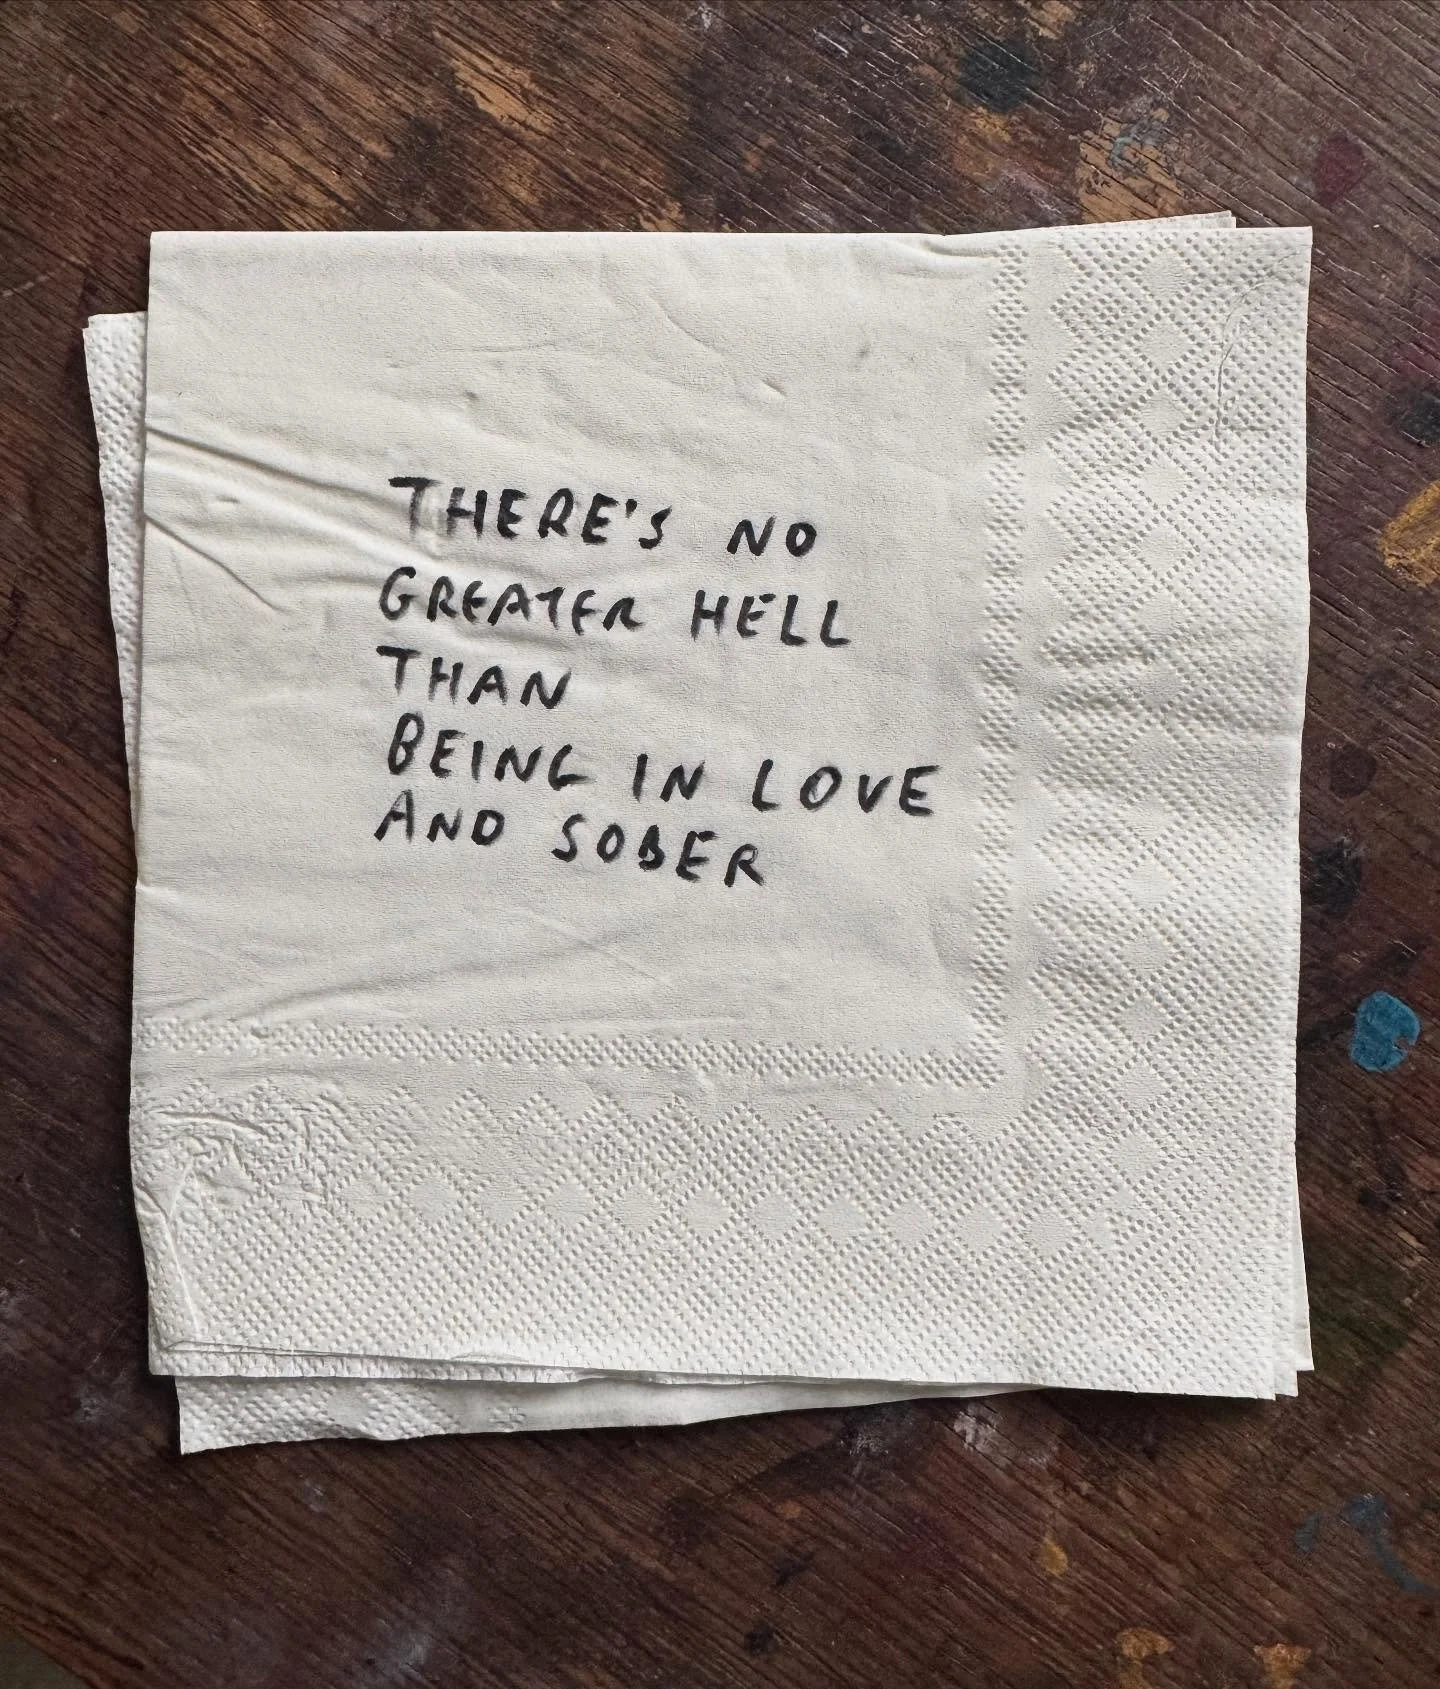 THERE'S NO
GREATER HELL
THAN
BEING IN LOVE
AND SOBER